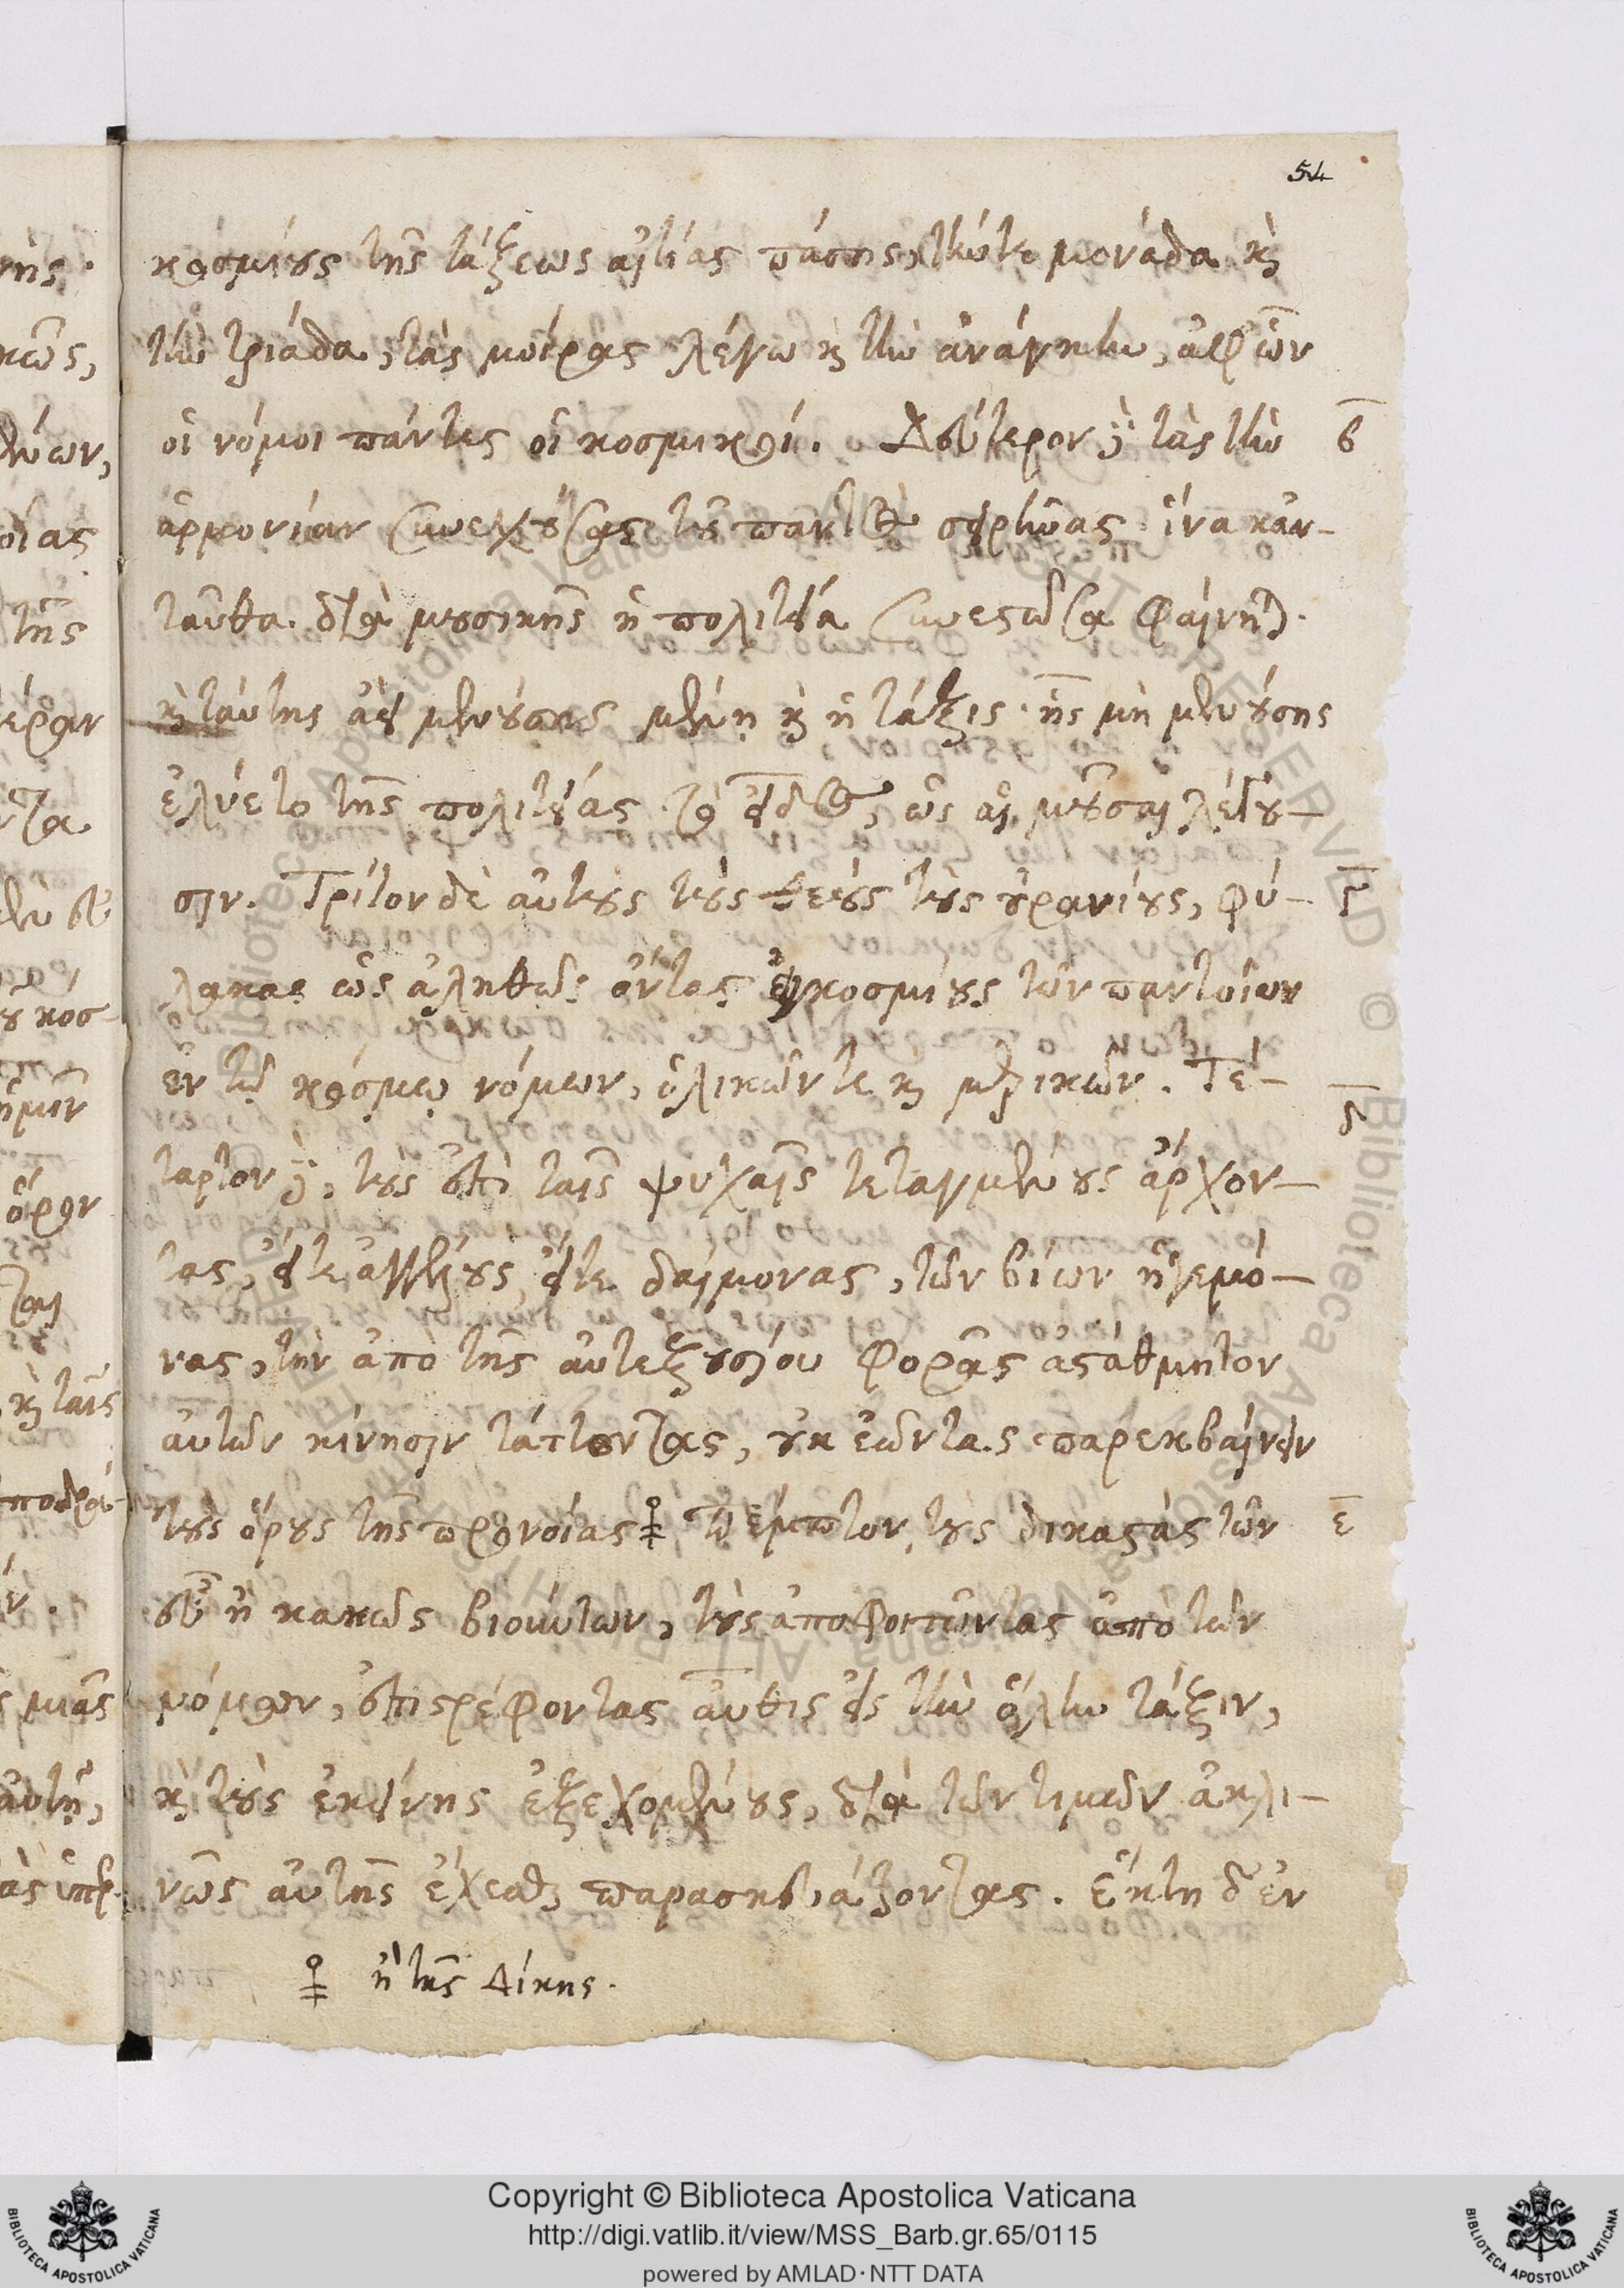 54
κοσμίους τῆς τάξεως αἰτίας πάσης, τήν τε μονάδα καὶ
τὴν τριάδα, τὰς μοίρας λέγω καὶ τὴν ἀνάγκην, ἀφ' ὧν
οἱ νόμοι πάντες οἱ κοσμικοί. Δεύτερον δὲ τὰς τὴν
β
ἁρμονίαν συνεχούσας τοῦ παντὸς σειρῆνας· ἵνα κἀν-
ταῦθα διὰ μουσικῆς ἡ πολιτεία συνεστῶσα φαίνηται.
καὶ ταύτης ἀεὶ μενούσης μένῃ καὶ ἡ τάξις· ἧς μὴ μενούσης
ἐλύετο τῆς πολιτείας τὸ εἶδος, ὡς αἱ μοῦσαι λέγου-
σιν. Τρίτον δὲ αὐτοὺς τοὺς θεοὺς τοὺς οὐρανίους, φύ-
γ
λακας ὡς ἀληθῶς ὄντας ἐγκοσμίους τῶν παντοίων
ἐν τῷ κόσμῳ νόμων, ὁλικῶν τε καὶ μερικῶν. Τέ-
δ
ταρτον δὲ, τοὺς ἐπὶ ταῖς ψυχαῖς τεταγμένους ἄρχον-
τας, εἴτε ἀγγέλους, εἴτε δαίμονας, τῶν βίων ἡγεμό-
νας, τὴν ἀπὸ τῆς αὐτεξουσίου φορᾶς ἀστάθμητον
αὐτῶν κίνησιν τάττοντας, οὐκ ἐῶντας παρεκβαίνειν
τοὺς ὅρους τῆς προνοίας Πέμπτον, τοὺς δικαστὰς τῶν
ε
εὖ ἢ κακῶς βιούντων, τοὺς ἀποφοιτῶντας ἀπὸ τῶν
νόμων, ἐπιστρέφοντας αὖθις εἰς τὴν ὅλην τάξιν,
καὶ τοὺς ἐκείνης ἐξεχομένους, διὰ τῶν τιμῶν ἀκλι-
νῶς αὐτῆς ἔχεσθαι παρασκευάζοντας. Ἕκτη δ' ἐν
ἢ τῆς Δίκης.
Copyright © Biblioteca Apostolica Vaticana
http://digi.vatlib.it/view/MSS_Barb.gr.65/0115
powered by AMLAD·NTT DATA